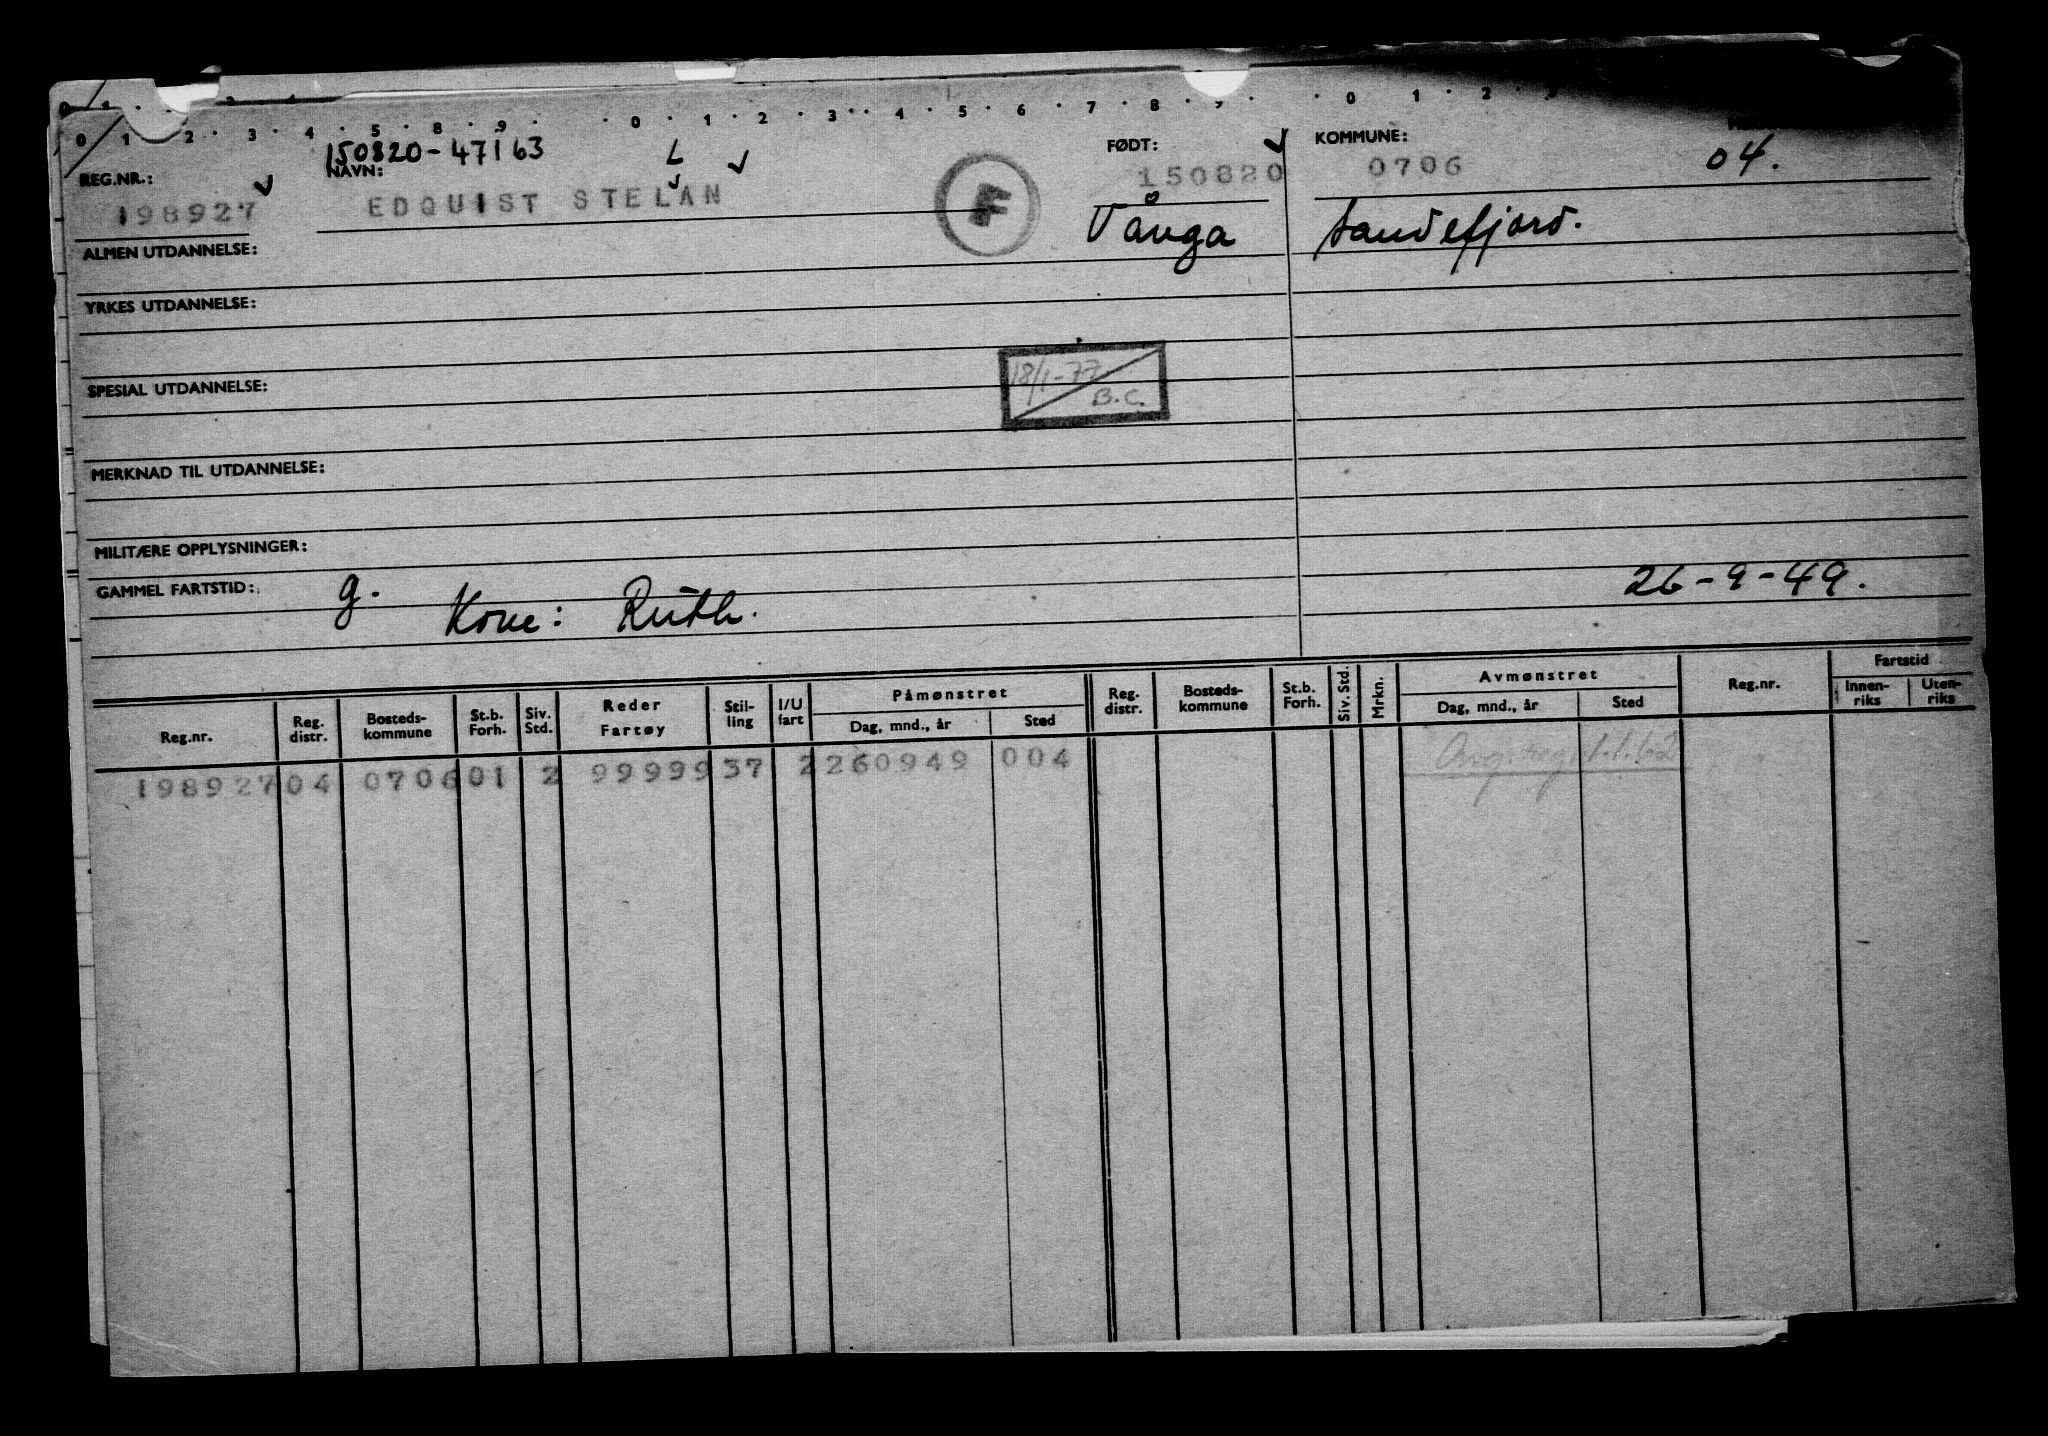 0 1 2 3 4 5 8 9 0 1 2 3 4 5 6 7 8 9 0 1 2
150820-47163 L
REG.NR.: NAVN: FØDT: KOMMUNE: 04.
198927 EDQUIST STELAN F 150820 0706
Vånga Sandefjord.
ALMEN UTDANNELSE:
YRKES UTDANNELSE:
18/1-77
B.C.
SPESIAL UTDANNELSE:
MERKNAD TIL UTDANNELSE:
MILITÆRE OPPLYSNINGER:
GAMMEL FARTSTID: g. 26-9-49.
Kone: Ruth.
Reg.nr. Reg. distr. Bosteds-kommune St.b. Forh. Siv. Std. Reder Fartøy Stil-ling I/U fart Påmønstret Dag, mnd., år Sted Reg. distr. Bosteds-kommune St.b. Forh. Siv. Std. Mrkn. Avmønstret Dag, mnd., år Sted Reg.nr. Fartstid Innen-riks Uten-riks
198927 04 0706 01 2 99999 37 2 260949 004 Avg. reg. 1.1.62